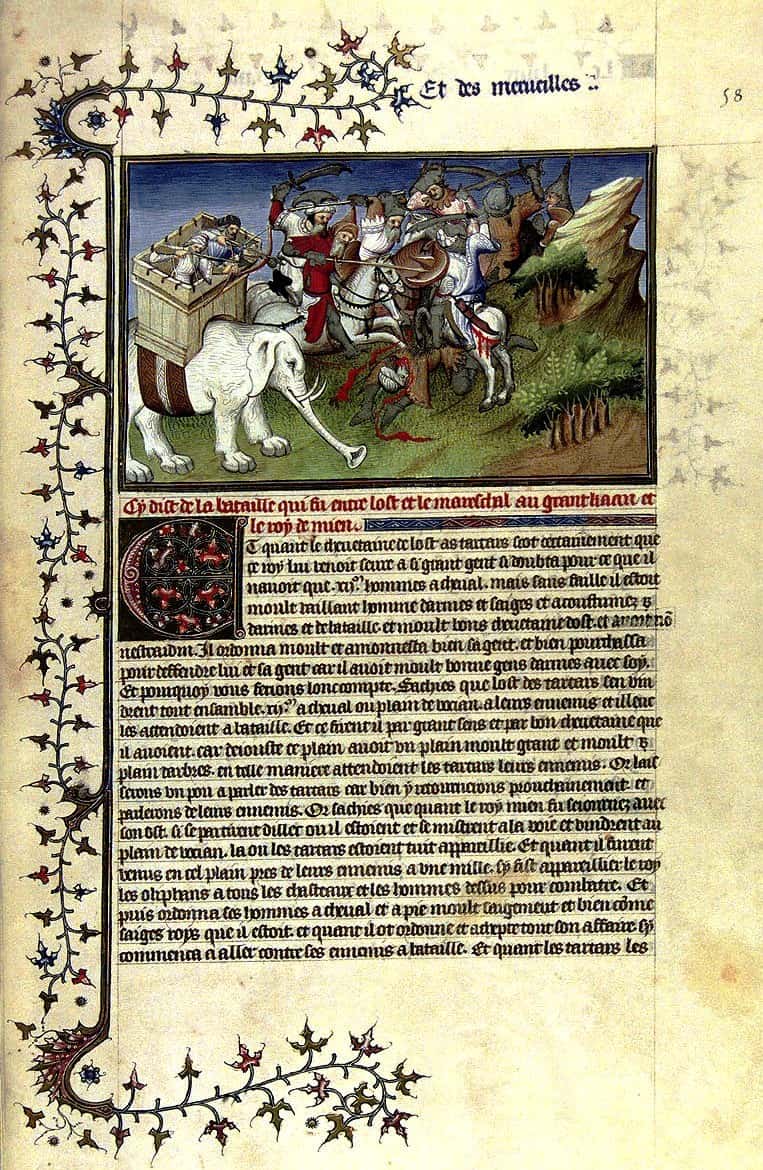 Et des merueilles
58
Cy dist de la bataille qui fu entre lost et le mareschal au grant kaan et
le roy de mien.
Et quant le cheuetaine de lost as tartars scot certainement que
ce roy lui venoit seure a si grant gent si doubta pour ce que il
nauoit que .xii.ᵐ hommes a cheual. mais sans faille il estoit
moult vaillant homme darmes et saiges et acoustumez
darmes et de bataille et moult bons cheuetaine dost. et auoit nō
nestraidin. Il ordonna moult et amonnesta bien sa gent. et bien pourchassa
pour deffendre lui et sa gent car il auoit moult bonne gens darmes auec soy.
Et pourquoy vous feroions lonc compte. Sachies que lost des tartars sen vin
drent tout ensamble .xii.ᵐ a cheual ou plain de vocian. a leurs ennemis et illeuc
les attendoient a bataille. Et ce firent il par grant sens et par bon cheuetaine que
il auoient. car deiouste ce plain auoit vn plain moult grant et moult
plain darbres. en telle maniere attendoient les tartars leurs ennemis. Or lais
serons vn pou a parler des tartars car bien y retournerons prouchainement. et
parlerons de leurs ennemis. Or sachies que quant le roy mien fu seiournez auec
son ost. si se partirent dillec ou il estoient et se mistrent a la voie et vindrent au
plain de vocian. la ou les tartars estoient tuit appareillie. Et quant il furent
venus en cel plain pres de leurs ennemis a vne mille. sy fist appareillier le roy
les oliphans a tous les chasteaux et les hommes dessus pour combatre. Et
puis ordonna ses hommes a cheual et a pie moult saigement et bien cōme
saiges roys que il estoit. et quant il ot ordonne et adrepte tout son affaire sy
commenca a aller contre ses ennemis a bataille. Et quant les tartars les